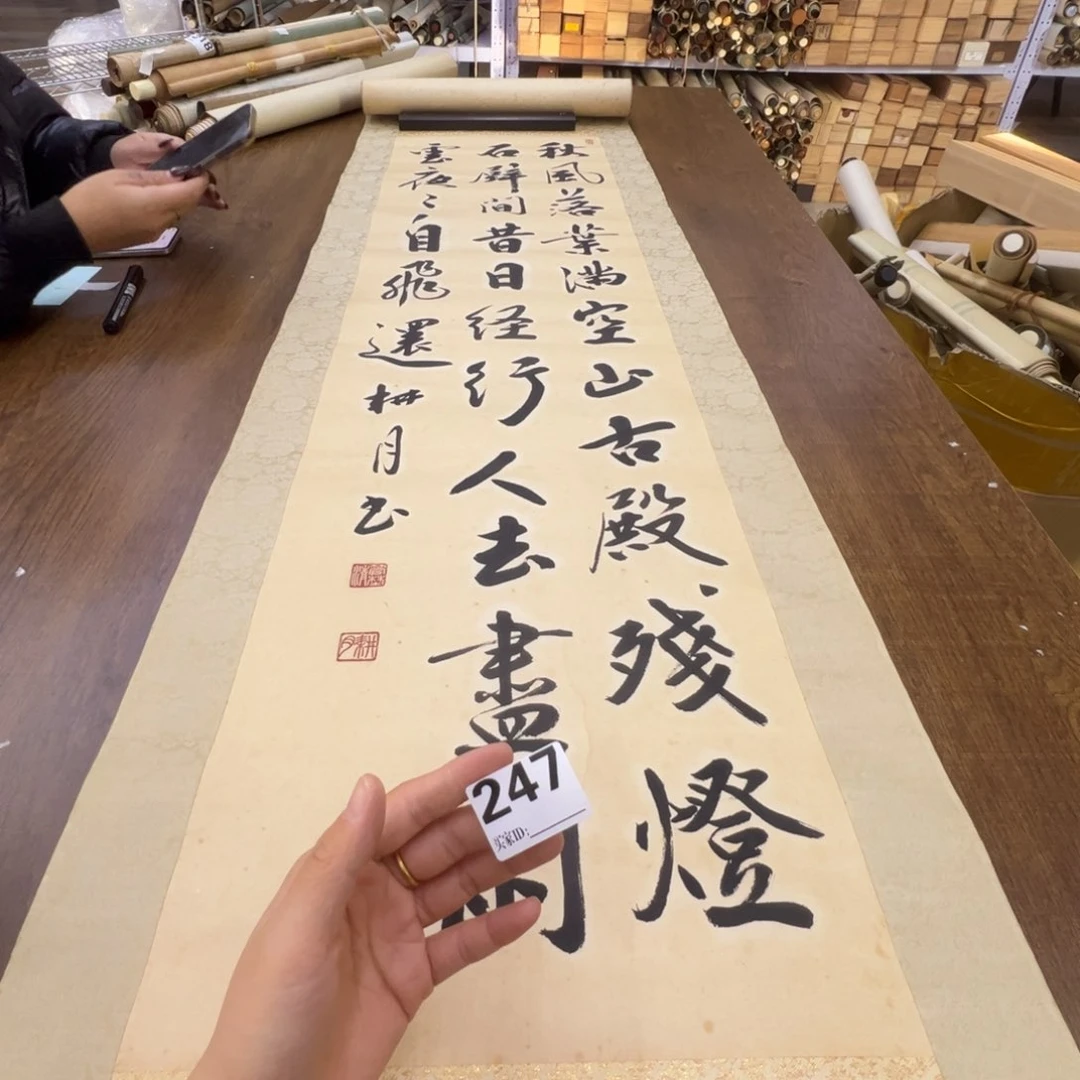 秋風落葉滿空山古殿殘燈
石壁間昔日経行人去盡
雲夜〻自飛還 耕月书
耕月
247
买家ID: